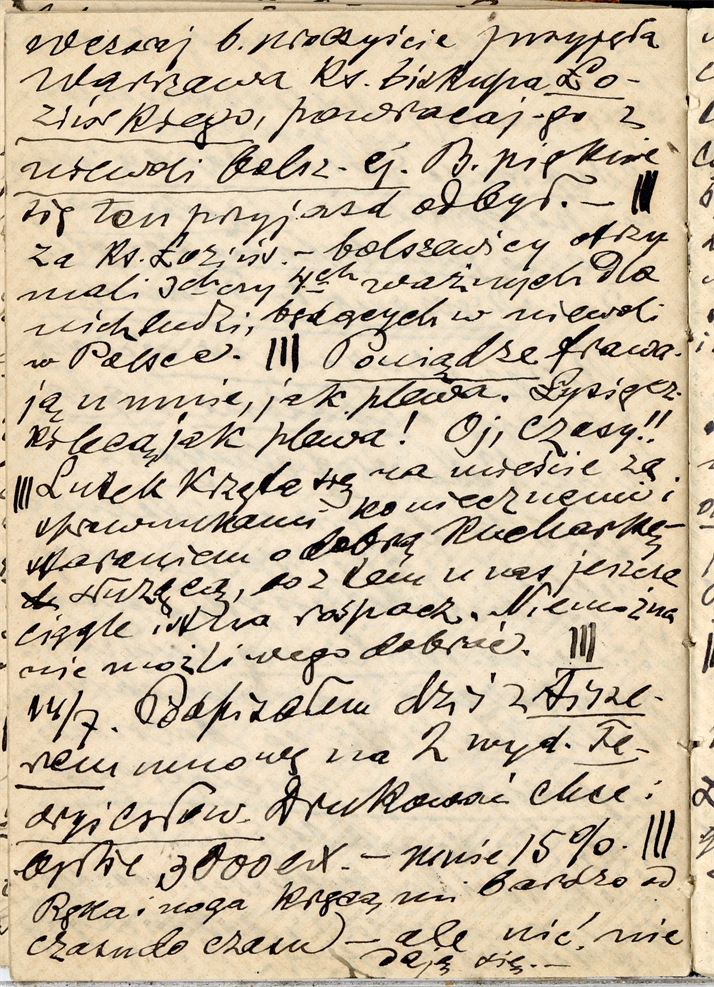 wczoraj b. uroczyście przyjęła
Warszawa Ks. biskupa Ło-
zińskiego, powracaj-go z
niewoli bolsz-ej. B. pięknie
się ten przyjazd odbył. — |||
Za Ks. Łozińs. — bolszewicy otrzy
mali 3ch czy 4ch ważnych dla
nich ludzi, będących w niewoli
w Polsce. ||| Pieniądze fruwa-
ją u mnie, jak plewa. Tysiącz-
ki lecą, jak plewa! Oj, czasy!!
||| Lutek krząta się na mieście za
sprawunkami koniecznemi i
staraniem o dobrą kucharkę
służącą, bo z tem u nas jeszcze
ciągle istna rozpacz. Niemożna
nic możliwego dobrać. |||
14/7. Podpisałem dziś z Fisze-
rem umowę na 2 wyd. Te-
oryi ciosów. Drukować chce:
3000 ex. — mnie 15%. |||
Ręka i noga kręcą mi bardzo od
czasu do czasu — ale nić, nie
daję się. —